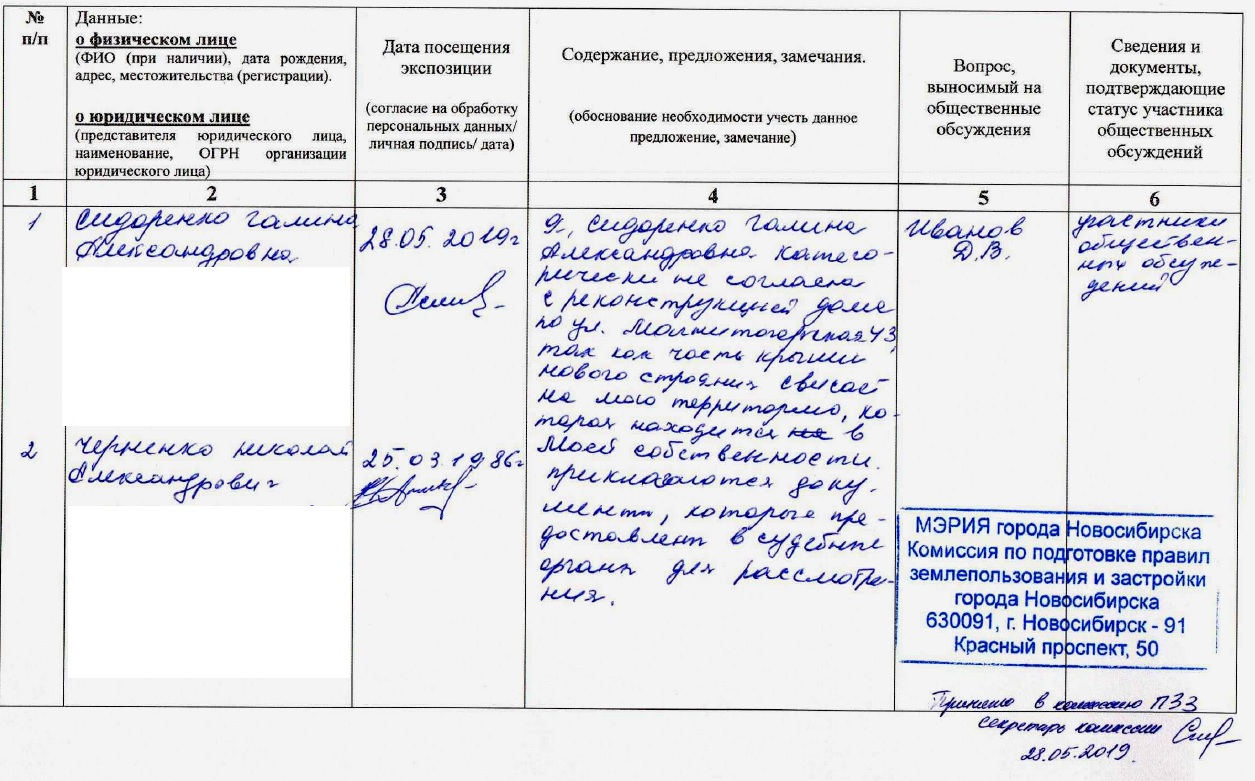 №
п/п
Данные:
о физическом лице
(ФИО (при наличии), дата рождения,
адрес, местожительства (регистрации).
о юридическом лице
(представителя юридического лица,
наименование, ОГРН организации
юридического лица)
Дата посещения
экспозиции
(согласие на обработку
персональных данных/
личная подпись/ дата)
Содержание, предложения, замечания.
(обоснование необходимости учесть данное
предложение, замечание)
Вопрос,
выносимый на
общественные
обсуждения
Сведения и
документы,
подтверждающие
статус участника
общественных
обсуждений
1
2
3
4
5
6
1
Сидоренко Галина
Александровна
28.05.2019г
Я, Сидоренко Галина
Александровна катего-
рически не согласна
с реконструкцией дома
по ул. Магнитогорская 43,
так как часть крыши
нового строения свисает
на мою территорию, ко-
торая находится на в
моей собственности.
прикладаются доку-
менты, которые пре-
доставлены в судебные
органы для рассмотре-
ния.
Иванов
Д.В.
участники
обществен-
ных обсуж-
дений
2
Черненко Николай
Александрович
25.03.1986г
МЭРИЯ города Новосибирска
Комиссия по подготовке правил
землепользования и застройки
города Новосибирска
630091, г. Новосибирск - 91
Красный проспект, 50
Принято в комиссию ПЗЗ
секретарь комиссии
28.05.2019.